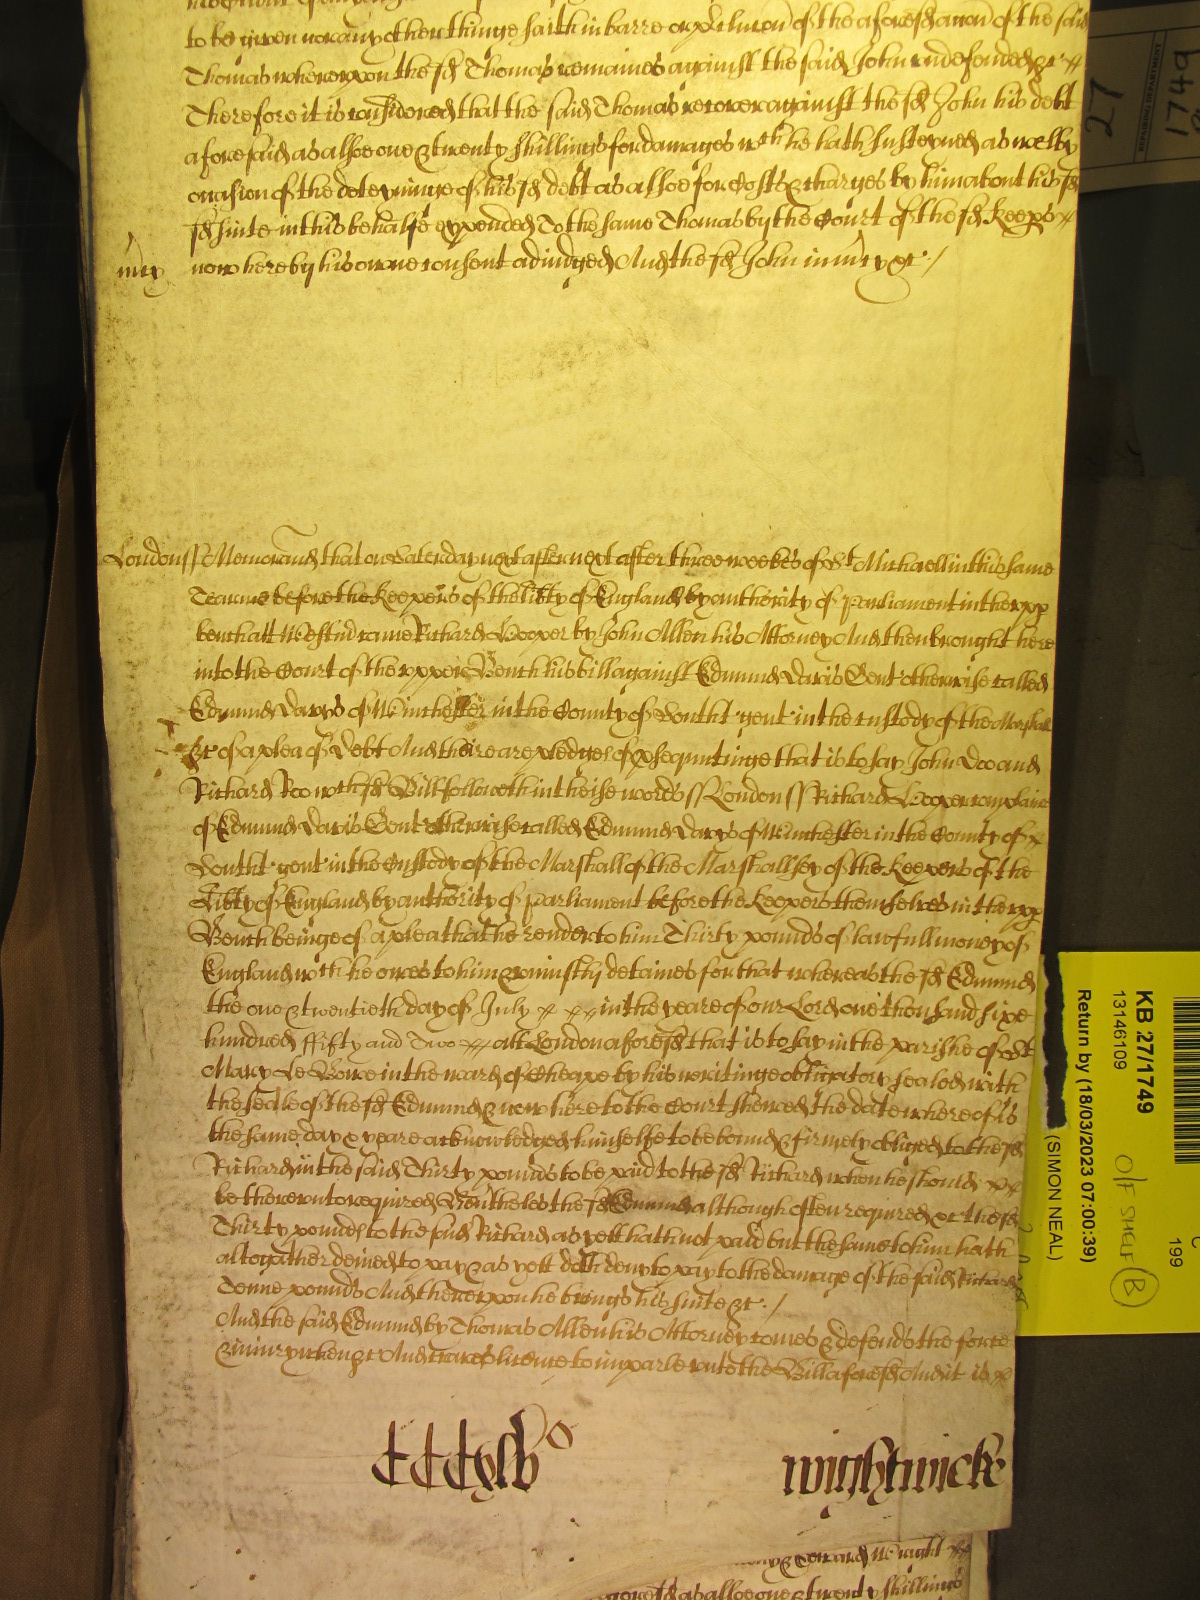 to be given nor any other thinge saith in barre or p̱clusion of the aforesd accon of the said
Thomas whereupon the sd Thomas remaines against the said John undefended &c
Therefore it is considered that the said Thomas recover against the sd John his debt
aforesaid as alsoe one & twenty shillings for damages wch he hath susteyned as well by
occasion of the deteyninge of his sd debt as alsoe for Costs & charges by him about his sd
sd suite in this behalfe expended To the same Thomas by the Court of the sd Keeps
now here by his owne consent adiudged And the sd John in mcy &c /
mcy
London ss Memorand that one Saterday next after next after three weekes of St Michaell in this same
Tearme before the Keepers of the libty of England by authority of Parliament in the upp
bench att Westmr came Richard Cooper by John Allen his Attorney And then brought here
into the Court of the upper Bench his bill against Edmund Davis Gent otherwise called
Edmund Davys of Winchester in the County of Southt gent in the custody of the Marshall
&c of a plea of Debt And theire are pledges of psequutinge that is to say John Doo and
Richard Roo wch sd Bill followeth in theise words ss London ss Richard Cooper complaines
of Edmund Davis Gent otherwise called Edmund Davys of Winchester in the County of
Southt gent in the Custody of the Marshall of the Marshallsey of the Keepers of the
Libty of England by authority of Parliament before the Keepers themselves in the upp
Bench beinge of a plea that he render to him Thirty pounds of lawfull money of
England wch he owes to him & uniustly detaines for that whereas the sd Edmund
the one & twentieth day of July in the yeare of our Lord one thousand sixe
hundred ffifty and Two att London aforesd that is to say in the parishe of St
Mary Le Bowe in the ward of Cheape by his writinge obligatory sealed with
the seale of the sd Edmund & now here to the Court shewed the date whereof is
the same day & yeare acknowledged himselfe to be bound & firmely obliged to the sd
Richard in the said Thirty pounds to be paid to the sd Richard when he should
be thereunto required Neutheles the sd Edmund although often required &c the sd
Thirty pounds to the said Richard as yett hath not paid but the same to him hath
altogather denied to pay & as yett doth deny to pay to the damage of the said Richard
Tenne pounds And thereupon he brings his suite &c /
And the said Edmund by Thomas Allen his Attorney comes & defends the force
& iniury when &c And craves licence to imparle unto the Bill aforesd And it is
CCCxlvo
wightwicke
aforesd as alsoe one & twenty shillings
2749
27
KB 27/1749
13146109
Return by (18/03/2023 07:00:39)
(SIMON NEAL)
O/F SHELF B
C
199